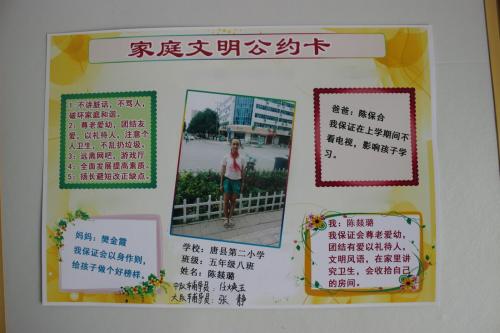 家庭文明公约卡
1：不讲脏话，不骂人，
破坏家庭和谐。
2：尊老爱幼，团结友
爱，以礼待人，注意个
人卫生，不乱扔垃圾。
3：远离网吧，游戏厅
4：全面发展提高素质
5：扬长避短改正缺点。
爸爸：陈保合
我保证在上学期间不
看电视，影响孩子学
习。
妈妈：樊金霞
我保证会以身作则，
给孩子做个好榜样。
学校：唐县第二小学
班级：五年级八班
姓名：陈燚璐
中队辅导员：任焕玉
大队辅导员：张静
我：陈燚璐
我保证会尊老爱幼，
团结有爱以礼待人，
文明风语，在家里讲
究卫生，会收拾自己
的房间。